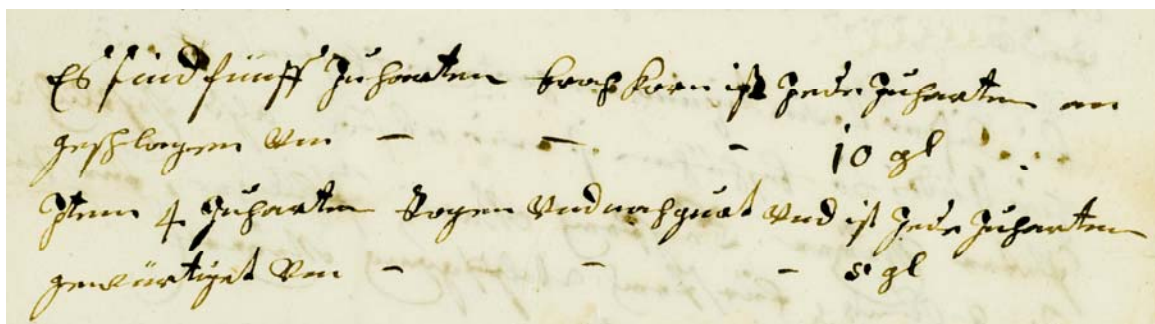 Es sind fünff Juharten brach korn ist Jede Juharten an
geschlagen Um - - - 10 gl
Item 4 Juharten Rogen Und nachguet Und ist Jede Juharten
gewürtiget Um - - - 8 gl